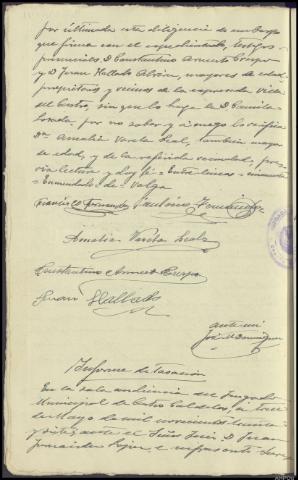 por ultimada esta diligencia de embargo
que firma con el expedientado, testigos
presenciales D. Constantino Armesto Crespo
y D Juan Hallado Albán, mayores de edad
propietarios y vecinos de la expresada villa
del Castro, sin que lo haga la Dª Camila
por no saber y a ruego lo verifica
Dª Amalia Varela Leal, tambien mayor
de edad, y de la referida vecindad, pre-
via lectura y doy fé = Entre lineas =
= Enmendado = de = Valga
Francisco Fernandez Paulino Fernandez
Amalia Varela Leal
Constantino Armesto Crespo
Juan Hallado
ante mi
José Dominguez
Informe de Tasación
En la sala audiencia del Juzgado
Municipal de Castro Caldelas, a trece
de Mayo de mil novecientos treinta
y siete, ante el Señor Juez D. Juan
Fernández e infrascrito Secre